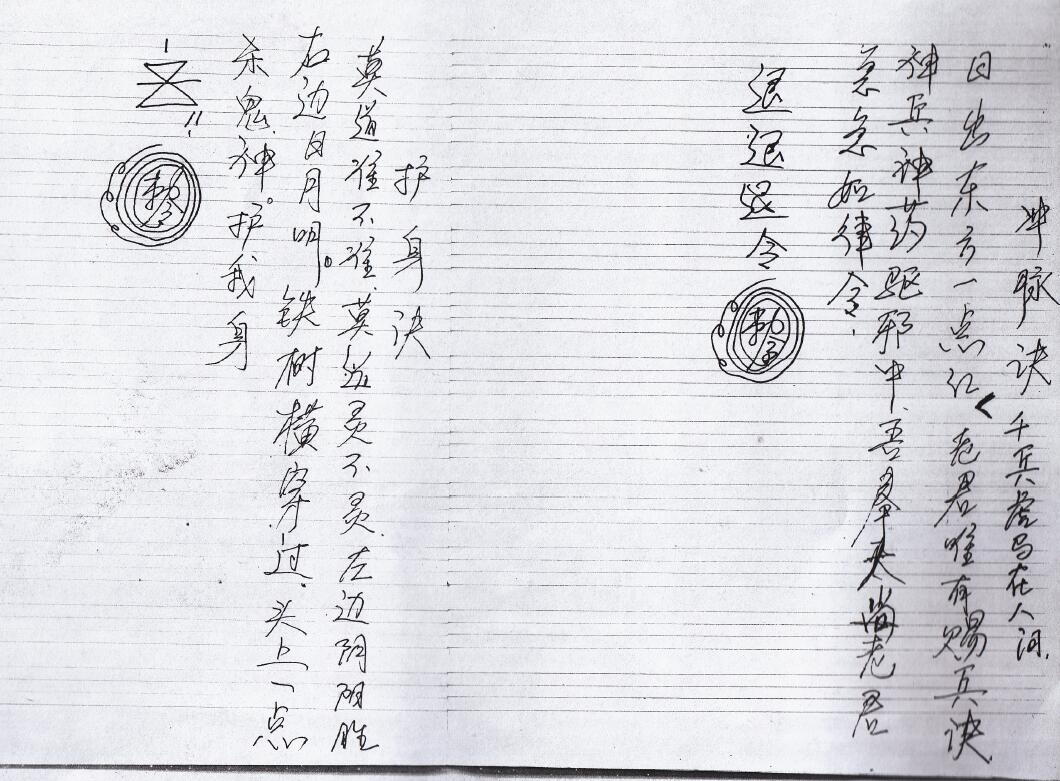 冲脉诀 千兵虎马在人间.
日出东方一点红 老君唯有赐兵诀
神兵神药驱邪中.吾奉太尚老君
急急如律令.
退退退令
敕令
护身诀
莫道准不准.莫道灵不灵.左边阴阳胜
右边日月明。铁树横穿过.头上一点
杀鬼神。护我身
敕令